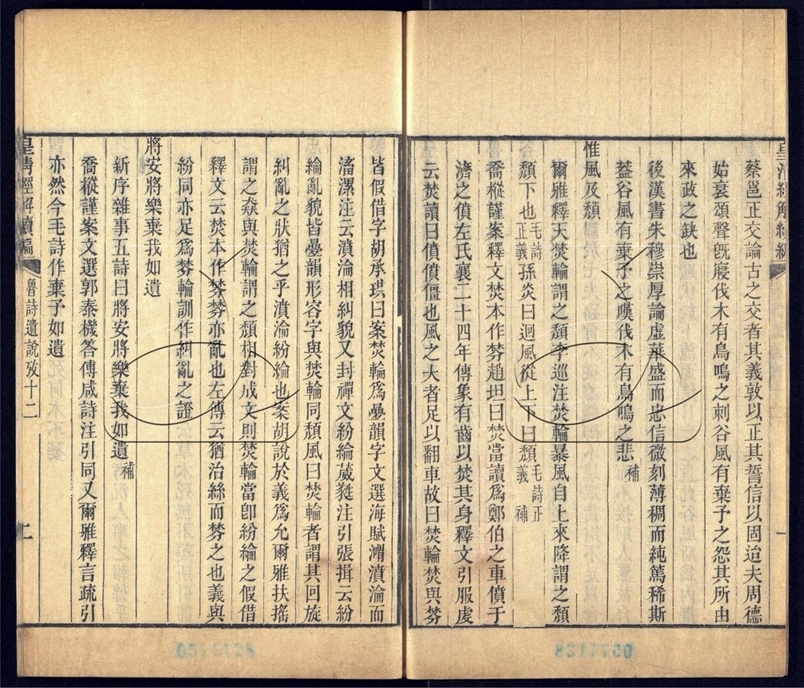 蔡邕正交論古之交者其義敦以正其誓信以固迨夫周德
始衰頌聲旣寢伐木有鳥鳴之刺谷風有棄予之怨其所由
來政之缺也
後漢書朱穆崇厚論虛華盛而忠信微刻薄稠而純篤稀斯
葢谷風有棄予之嘆伐木有鳥鳴之悲補
惟風及頹
爾雅釋天焚輪謂之頹李巡注焚輪暴風自上來降謂之頹
頹下也毛詩正義孫炎曰迴風從上下曰頹毛詩正義 補
喬樅謹案釋文焚本作棼趙坦曰焚當讀爲鄭伯之車僨于
濟之僨左氏襄二十四年傳象有齒以焚其身釋文引服虔
云焚讀曰僨僨僵也風之大者足以翻車故曰焚輪焚與棼
皆假借字胡承珙曰案焚輪爲疊韻字文選海賦㴸瀇淪而
滀漯注云瀇淪相糾貌又封禪文紛綸葳蕤注引張揖云紛
綸亂貌皆疊韻形容字與焚輪同頹風曰焚輪者謂其回旋
糾亂之狀猶之乎瀇淪紛綸也案胡說於義爲允爾雅扶搖
謂之猋與焚輪謂之頹相對成文則焚輪當卽紛綸之假借
釋文云焚本作棼棼亦亂也左傳云猶治絲而棼之也義與
紛同亦足爲棼輪訓作糾亂之證
將安將樂棄我如遺
新序雜事五詩曰將安將樂棄我如遺補
喬樅謹案文選郭泰機答傅咸詩注引同又爾雅釋言疏引
亦然今毛詩作棄予如遺
皇清經解續編
魯詩遺說攷十二
二